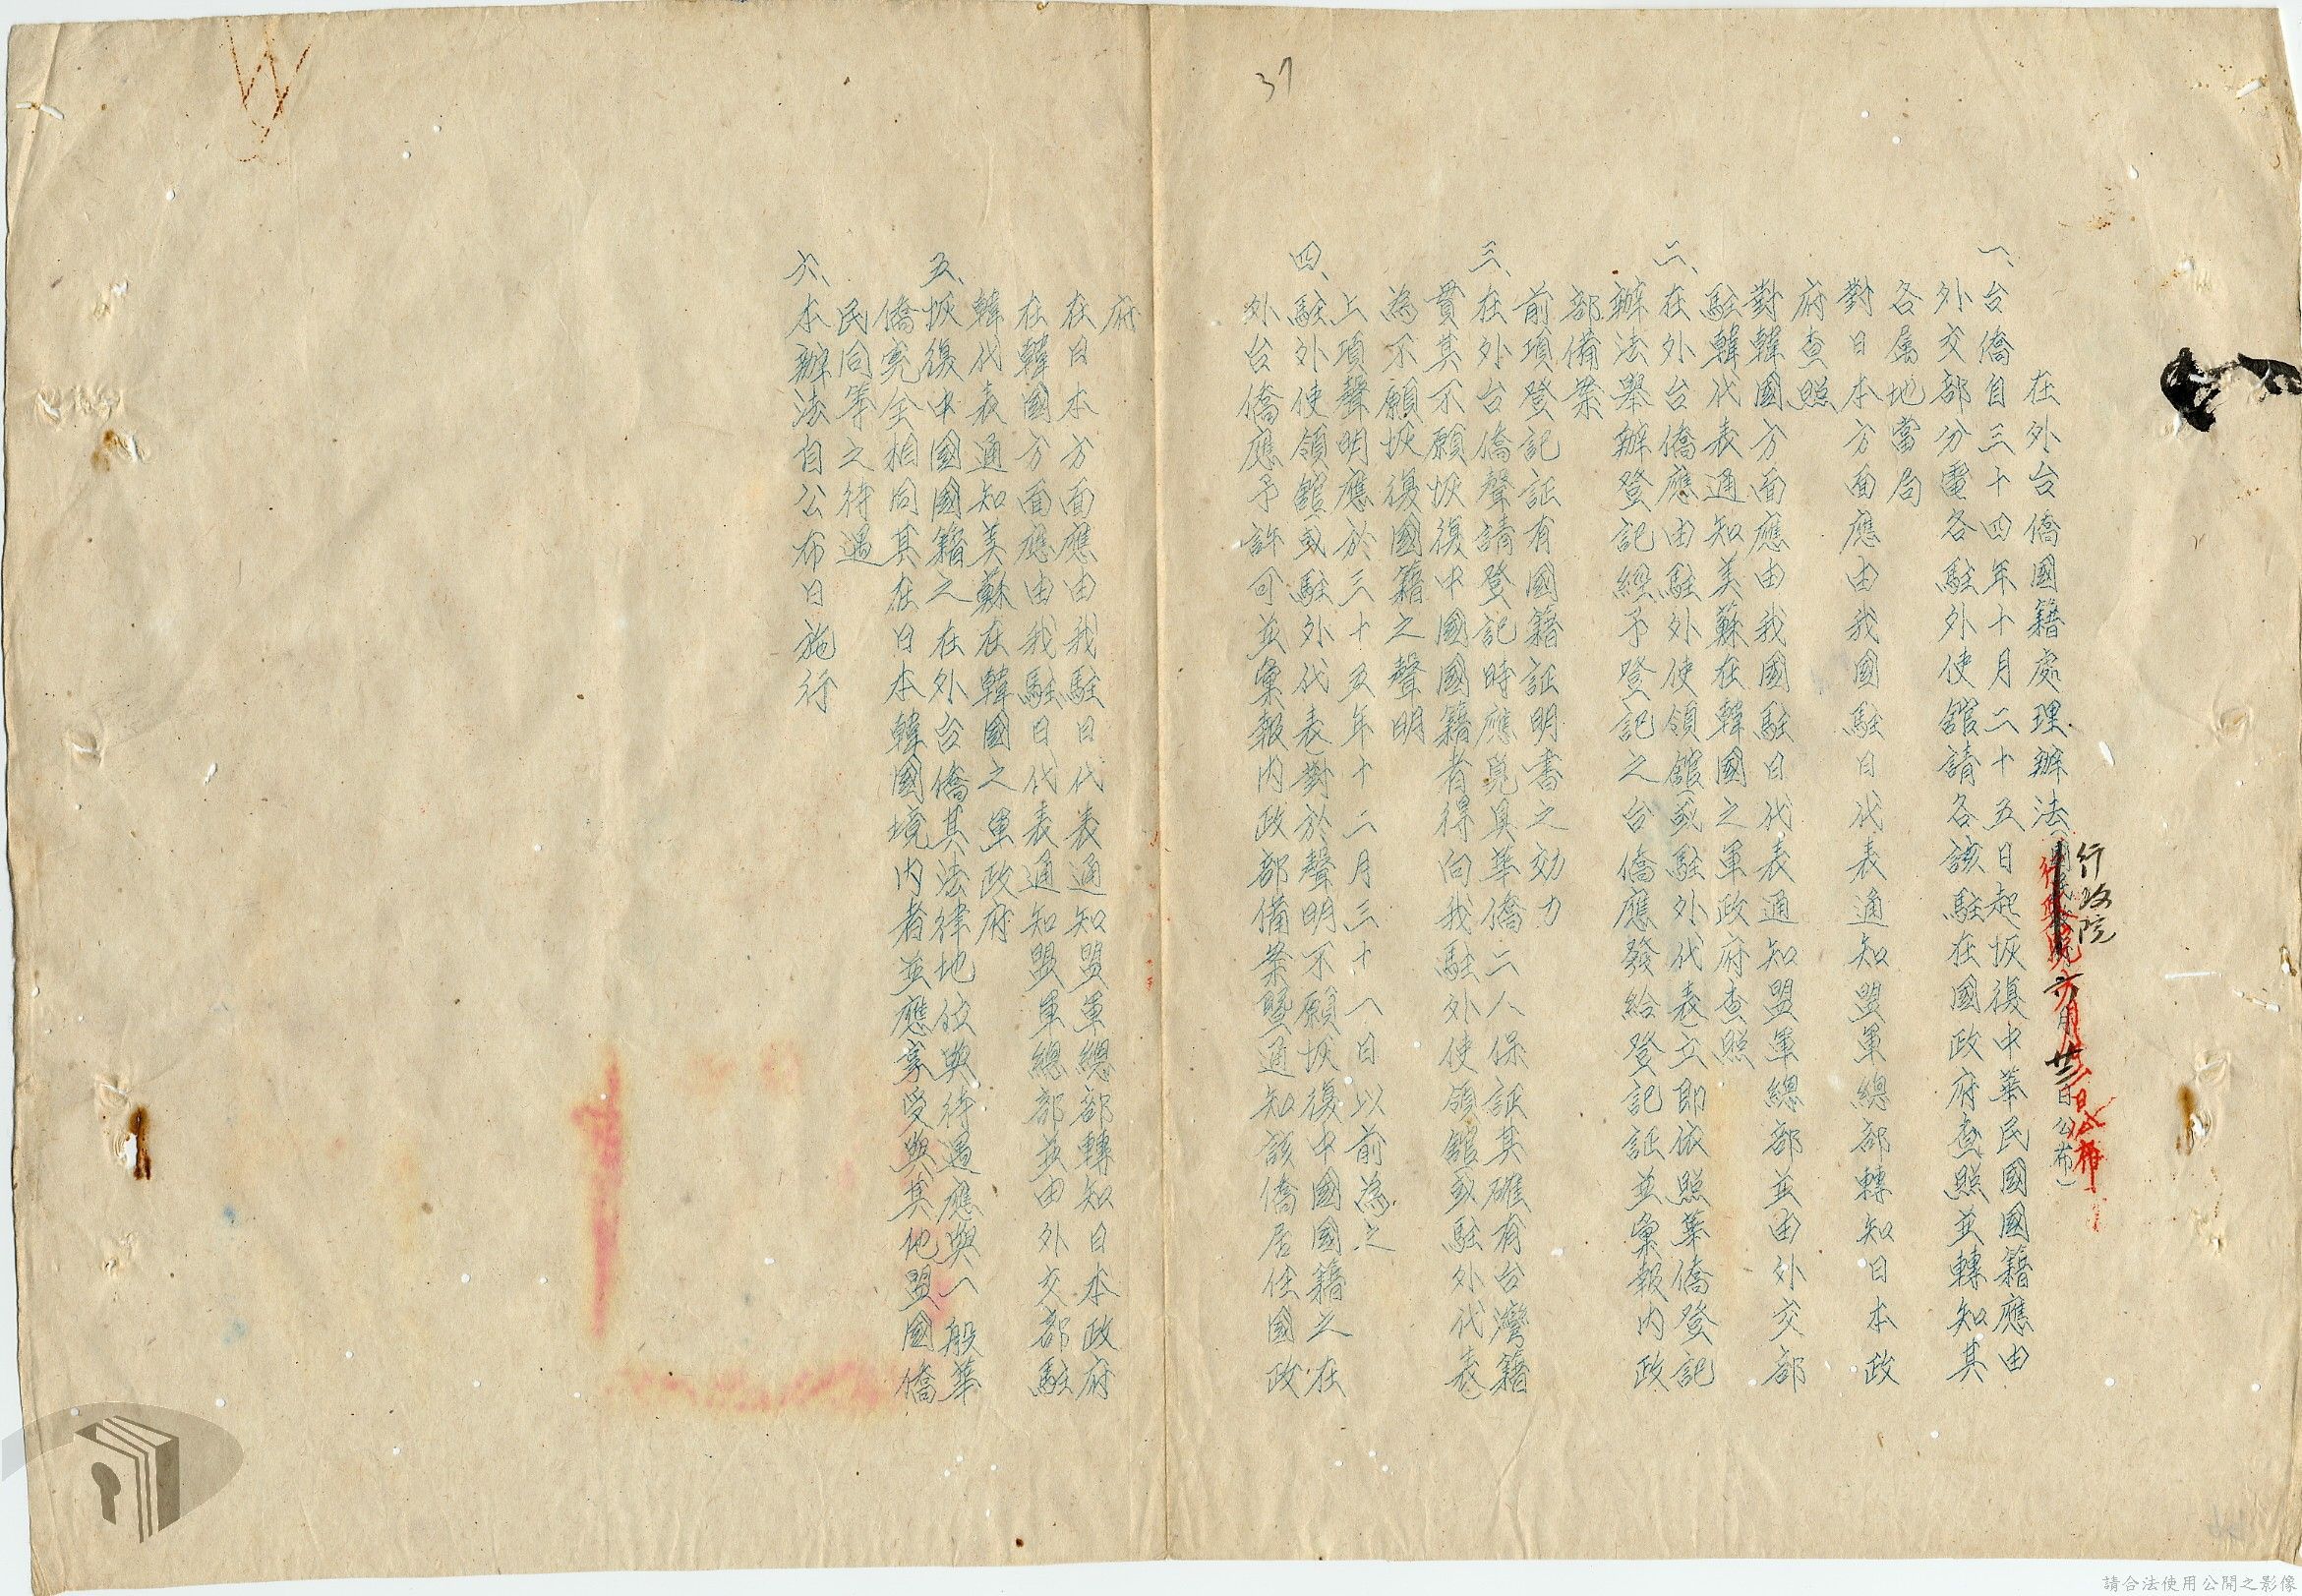 37
在外台僑國籍處理辦法(
行政院
廿二日公布)
一、台僑自三十四年十月二十五日起恢復中華民國國籍應由
外交部分電各駐外使舘請各該駐在國政府查照並轉知其
各屬地當局
對日本方面應由我國駐日代表通知盟軍總部轉知日本政
府查照
對韓國方面應由我國駐日代表通知盟軍總部並由外交部
駐韓代表通知美蘇在韓國之軍政府查照
二、在外台僑應由駐外使領舘(或駐外代表)立即依照華僑登記
辦法舉辦登記經予登記之台僑應發給登記証並彙報內政
部備案
前項登記証有國籍証明書之効力
三、在外台僑聲請登記時應覓具華僑二人保証其確有台灣籍
貫其不願恢復中國國籍者得向我駐外使領舘或駐外代表
為不願恢復國籍之聲明
上項聲明應於三十五年十二月三十一日以前為之
四、駐外使領舘(或駐外代表)對於聲明不願恢復中國國籍之在
外台僑應予許可並彙報內政部備案暨通知該僑居住國政
府
在日本方面應由我駐日代表通知盟軍總部轉知日本政府
在韓國方面應由我駐日代表通知盟軍總部並由外交部駐
韓代表通知美蘇在韓國之軍政府
五、恢復中國國籍之在外台僑其法律地位與待遇應與一般華
僑完全相同其在日本韓國境內者並應享受與其他盟國僑
民同等之待遇
六、本辦法自公布日施行
請合法使用公開之影像